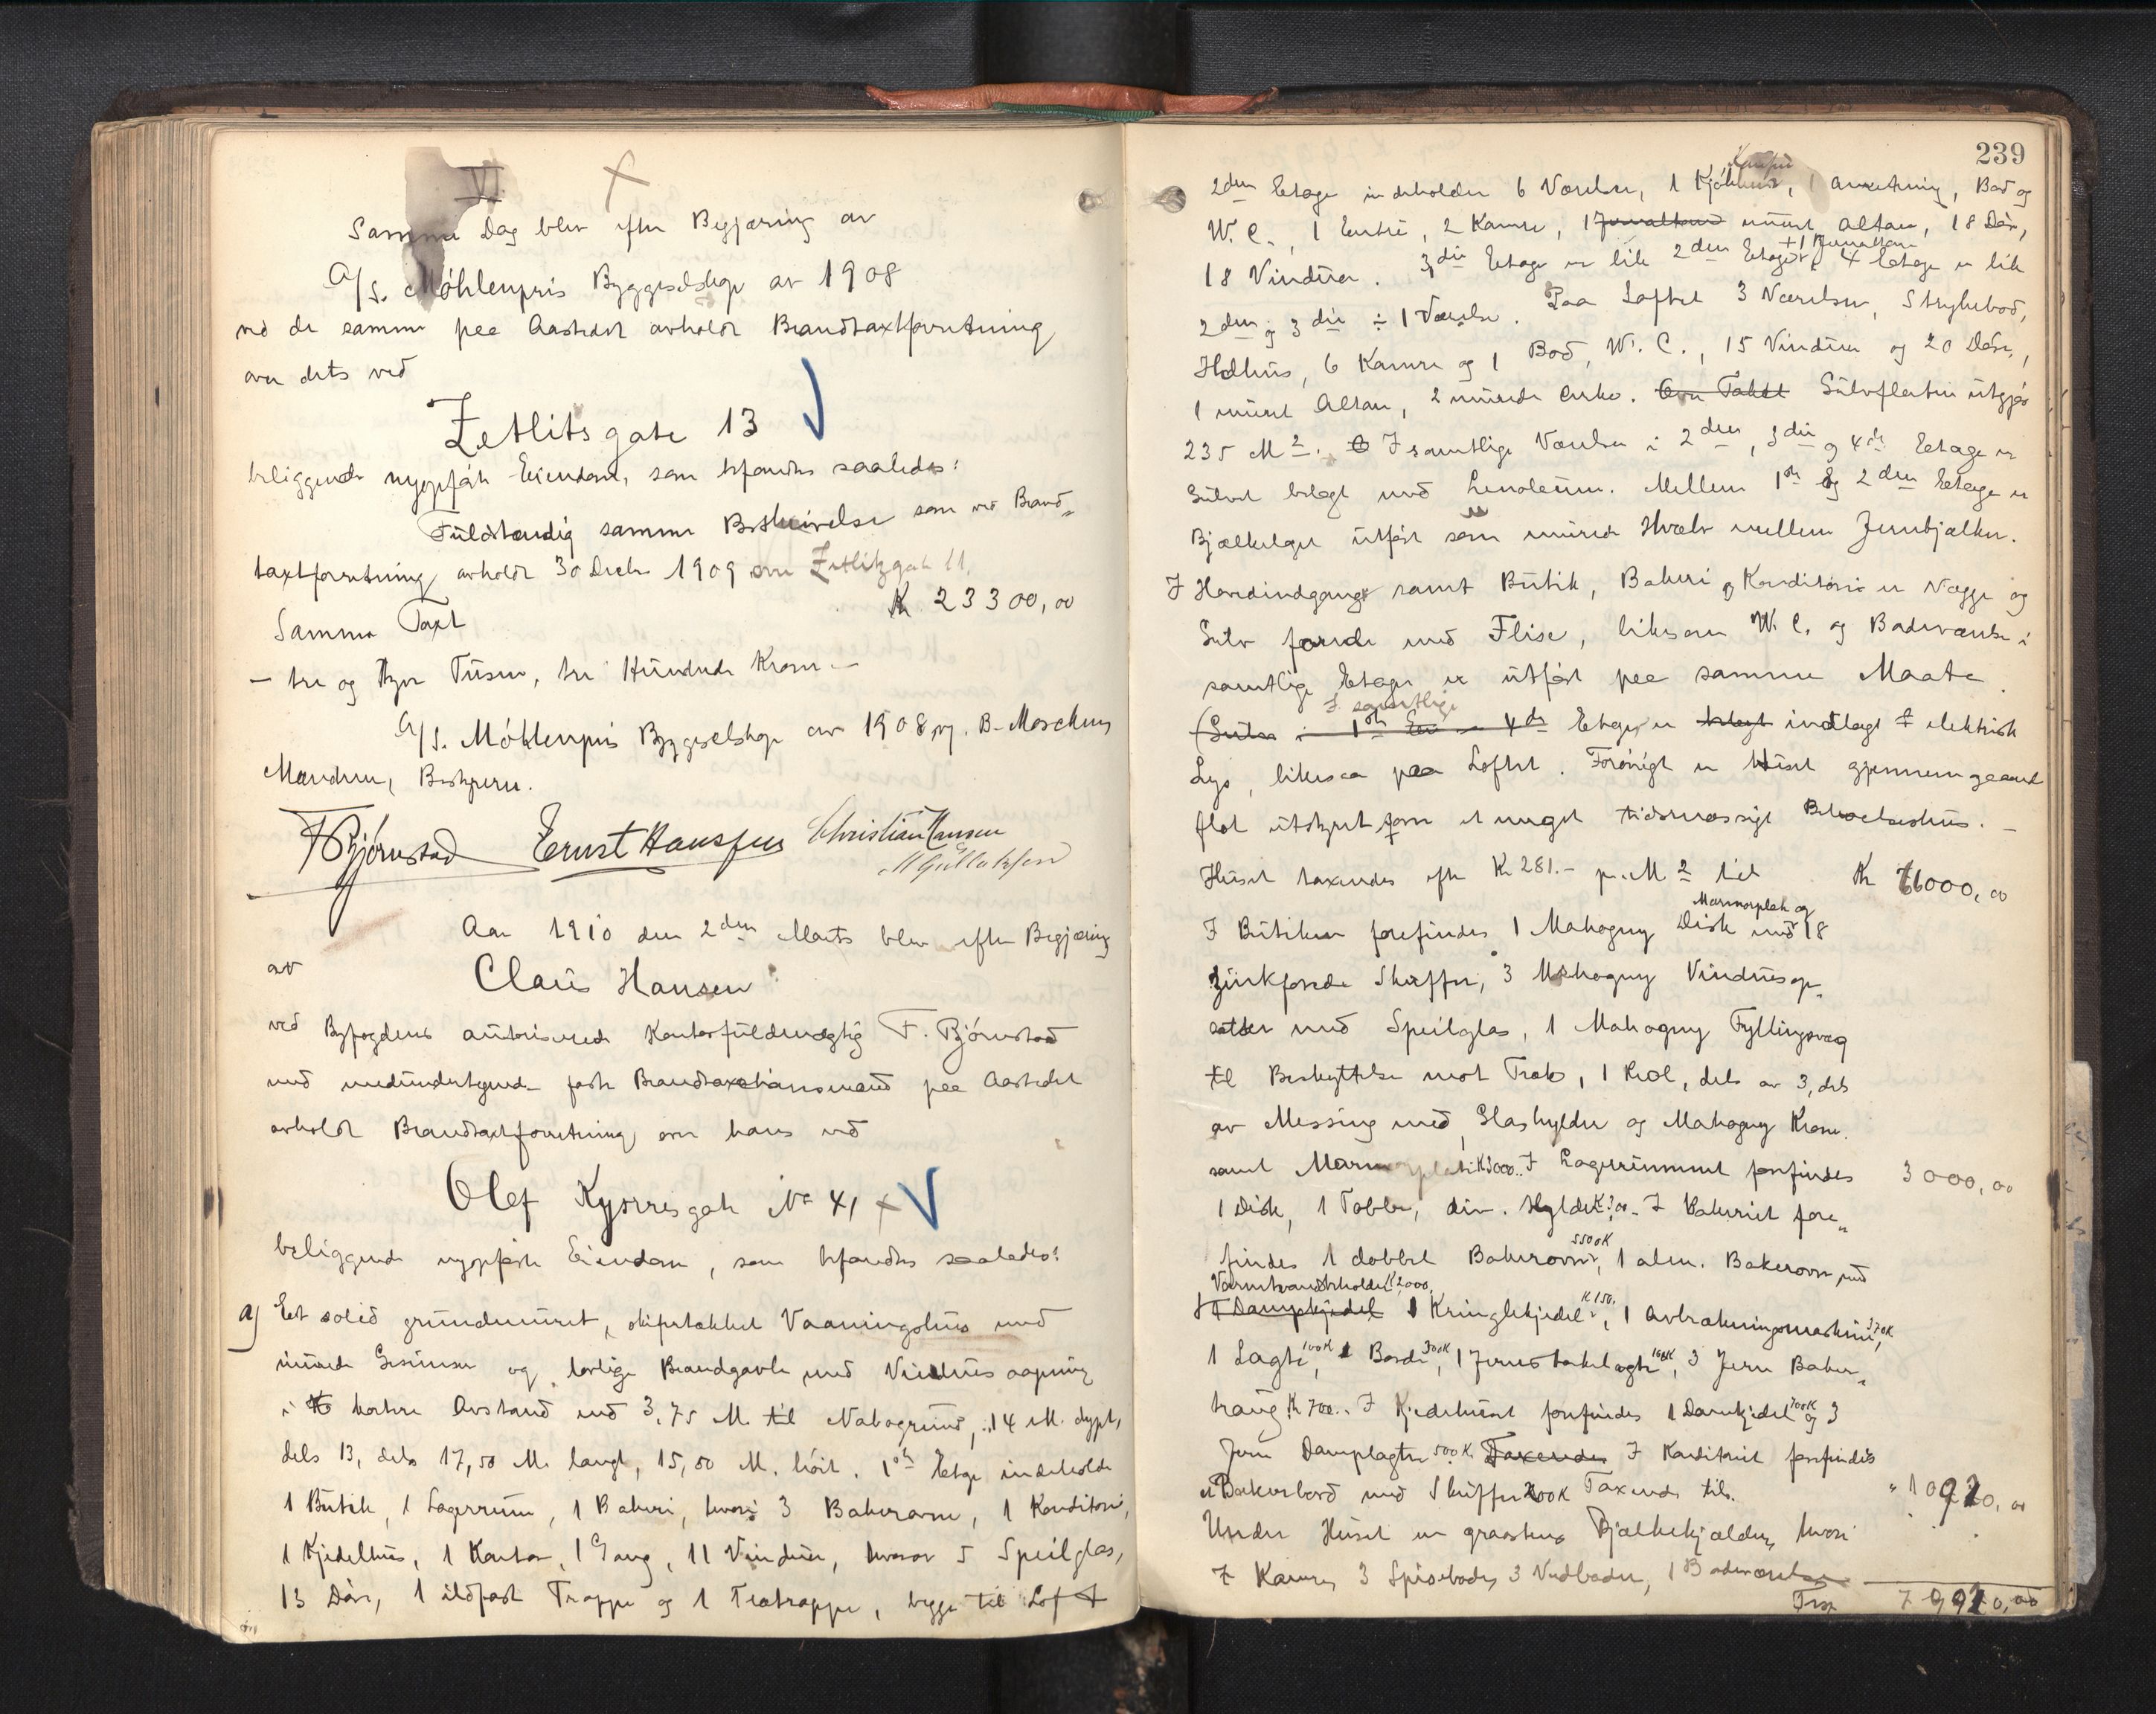 VI.
Samme Dag blev efter Begjæring av
A/S. Møhlenpris Byggeselskap av 1908
ved de samme paa Aastedet avholdt Brandtaxtforretning
over dets ved
Zetlitsgate 13
beliggende nyopført Eiendom, som befandtes saaledes:
Fuldstændig samme Beskrivelse som ved Brand„
taxtforretning avholdt 30 Decbr 1909 over Zetlitzgate 11.
Samme Taxt Kr 23300,00
— tre og tyve Tusen, tre Hundrede Kroner —
A/S. Møhlenpris Byggeselskap av 1908, v. B. Morchens
Mændene, Bestyreren.
F Bjørnstad Ernst Hanssen Christian Hansen
M Gullaksen
Aar 1910 den 2den Marts blev efter Begjæring
av
Claus Hansen
ved Byfogdens autoriserede Kontorfuldmægtig F. Bjørnstad
med medundertegnede faste Brandtaxtationsmænd paa Aastedet
avholdt Brandtaxtforretning over hans ved
Olef Kyrresgate No 41
beliggende nyopførte Eiendom, som befandtes saaledes:
a) Et solid grundmuret, skifertækket Vaaningshus med
murede Gesimser og lovlige Brandgavle med Vindues aapning
i kortere Avstand end 3,75 M. til Nabogrund, 14 M. dypt,
dels 13, dels 17,50 M. langt, 15,50 M. høit. 1ste Etage indeholder
1 Butik, 1 Lagerrum, 1 Bakeri, hvori 3 Bakerovne, 1 Konditori,
1 Kjedelhus, 1 Kontor, 1 Gang, 11 Vinduer, hvorav 5 Speilglas,
13 Døre, 1 ildfast Trappe og 1 Trætrappe, begge til Loft
239
2den Etage indeholder 6 Værelser, 1 Kjøkken, 1 Anretning, Bad og
W. C., 1 Entré, 2 Kamre, 1 Jernaltan muret Altan, 18 Døre,
18 Vinduer. 3die Etage er lik 2den Etage + 1 Jernaltan, 4 Etage er lik
2den og 3die ÷ 1 Værelse. Paa Loftet 3 Værelser, Strykebod,
6 Kamre og 1 Bod, W. C., 15 Vinduer og 20 Døre,
1 muret Altan, 2 murede Arker. Over Taket Gulvflaten utgjør
235 M2. I samtlige Værelser i 2den, 3die og 4de Etage er
Gulvet belagt med Linoleum. Mellem 1ste og 2den Etage er
Bjælkelaget utført som murede Hvælv mellem Jernbjælker.
I Hovedindgang samt Butik, Bakeri og Konditori er Vægge og
Gulv forede med Fliser, likesom W. C. og Badeværelse i
samtlige Etager er utført paa samme Maate.
I samtlige
(Gulve i 1ste 4de Etager er belagt indlagt elektrisk
Lys, likesaa paa Loftet. Forøvrigt er Huset gjennemgaaende
flot utstyrt som et meget tidsmæssigt Beboelseshus. —
Huset taxeredes efter Kr 281.- pr. M2 til Kr 66000,00
I Butiken forefindes 1 Mahogny Disk med Marmorplate og 18
zinkforede Skuffer, 3 Mahogny Vinduesop„
satser med Speilglas, 1 Mahogny Fyllingsvæg
til Beskyttelse mot Træk, 1 Reol, dels av 3, dels
av Messing med Glashylder og Mahogny Krone.
samt Marmorplate K 3000.. I Lagerrummet forefindes 3000,00
1 Disk, 1 Tabber, div. Hylder K 300.- I Bakeriet fore„
findes 1 dobbel Bakerovn 5500K, 1 alm. Bakerovn med
Varmtvandsbeholder K 2000.
1 Dampkjedel 1 Kringlekjedel K 150., 1 Avbrækningsmaskine 370K,
1 Vagt 100K, 1 Borde 300K, 1 Jernstakelagte 100K, 3 Jern Baker„
traug K 700.. I Kjedelhuset forefindes 1 Dampkjedel 700K og 3
Jern Damplagter 500 K. Taxeredes I Konditoriet forefindes
et Bakerbord med Skuffer 200K Taxeredes til. " 10920,00
Under Huset er graastens Bjælkekjælder, hvori
7 Kamre, 3 Spiseboder, 3 Vedboder, 1 Badeværelse
Trsp 79920,00